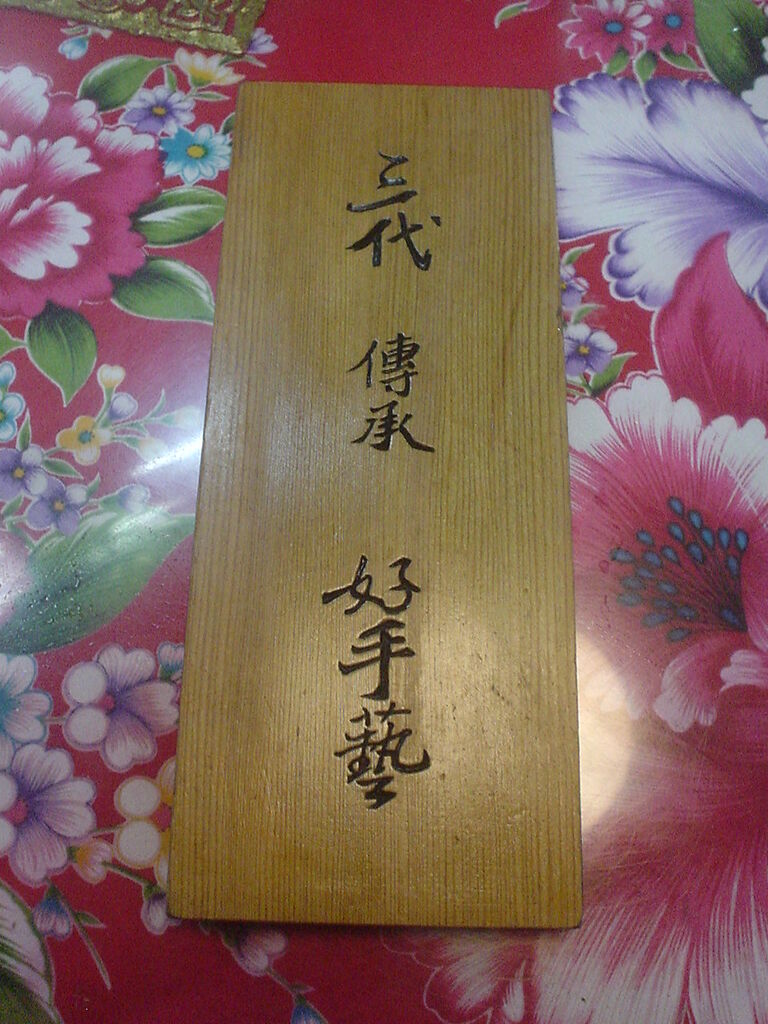 三代 傳承 好手藝